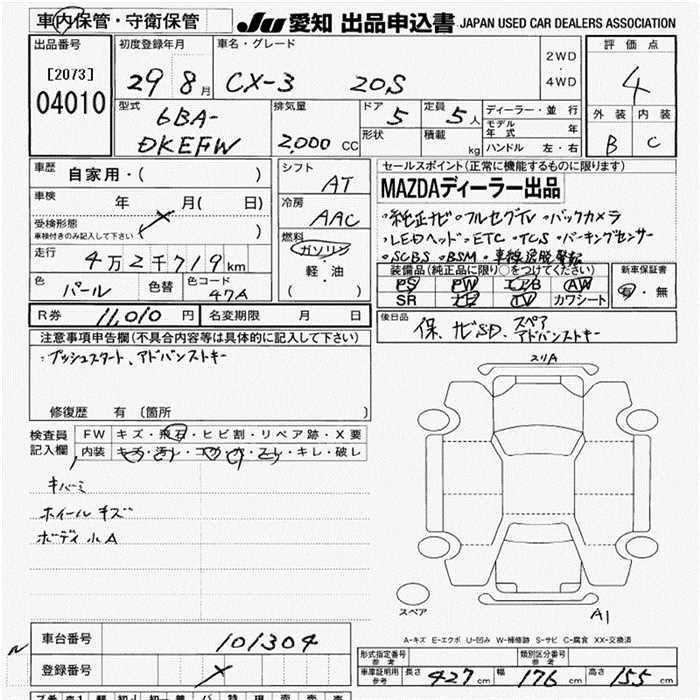 車内保管・守衛保管 JU 愛知 出品申込書 JAPAN USED CAR DEALERS ASSOCIATION
出品番号 初度登録年月 車名・グレード 2WD ・ 4WD 評価点
[2073] 29 8月 CX-3 20S 4
04010 外装 内装
型式 排気量 ドア 定員 ディーラー・並行
6BA- 5 5人 モデル年式 年
DKEFW 2,000 CC 形状 積載 kg ハンドル 左・右 B C
車歴 自家用・( ) シフト AT セールスポイント(正常に機能するものに限ります)
MAZDAディーラー出品
車検 年 月( 日) 冷房 AAC
・純正ナビ・フルセグTV・バックカメラ
受検形態 ( )
車検付きのみ記入して下さい
・LEDヘッド・ETC・TCS・パーキングセンサー
燃料 ガソリン
・SCBS・BSM・車線逸脱警報
走行 4万2千719km 軽・油
装備品(純正品に限り○をつけてください) 新車保証書
色 パール 色替 色コード 47A ( )
PS PW エアB AW 有・無
SR TV カワシート
R券 11,010円 名変期限 月 日
後日品 保、ナビSD、スペア
アドバンストキー
注意事項申告欄(不具合内容等は具体的に記入して下さい)
・プッシュスタート、アドバンストキー
スリA
修復歴 有 〔箇所 〕
検査員 FW キズ・飛石・ヒビ割・リペア跡・X要
記入欄 内装 キズ・汚レ・コゲ・穴・スレ・キレ・破レ
キバミ
ホイールキズ
ボディ小A
スペア
A1
A-キズ E-エクボ U-凹み W-補修跡 S-サビ C-腐食 XX-交換済
車台番号 101304
型式指定番号 参考 類別区分番号 参考
登録番号
車庫証明用 参考 長さ 427cm 幅 176cm 高さ 155cm